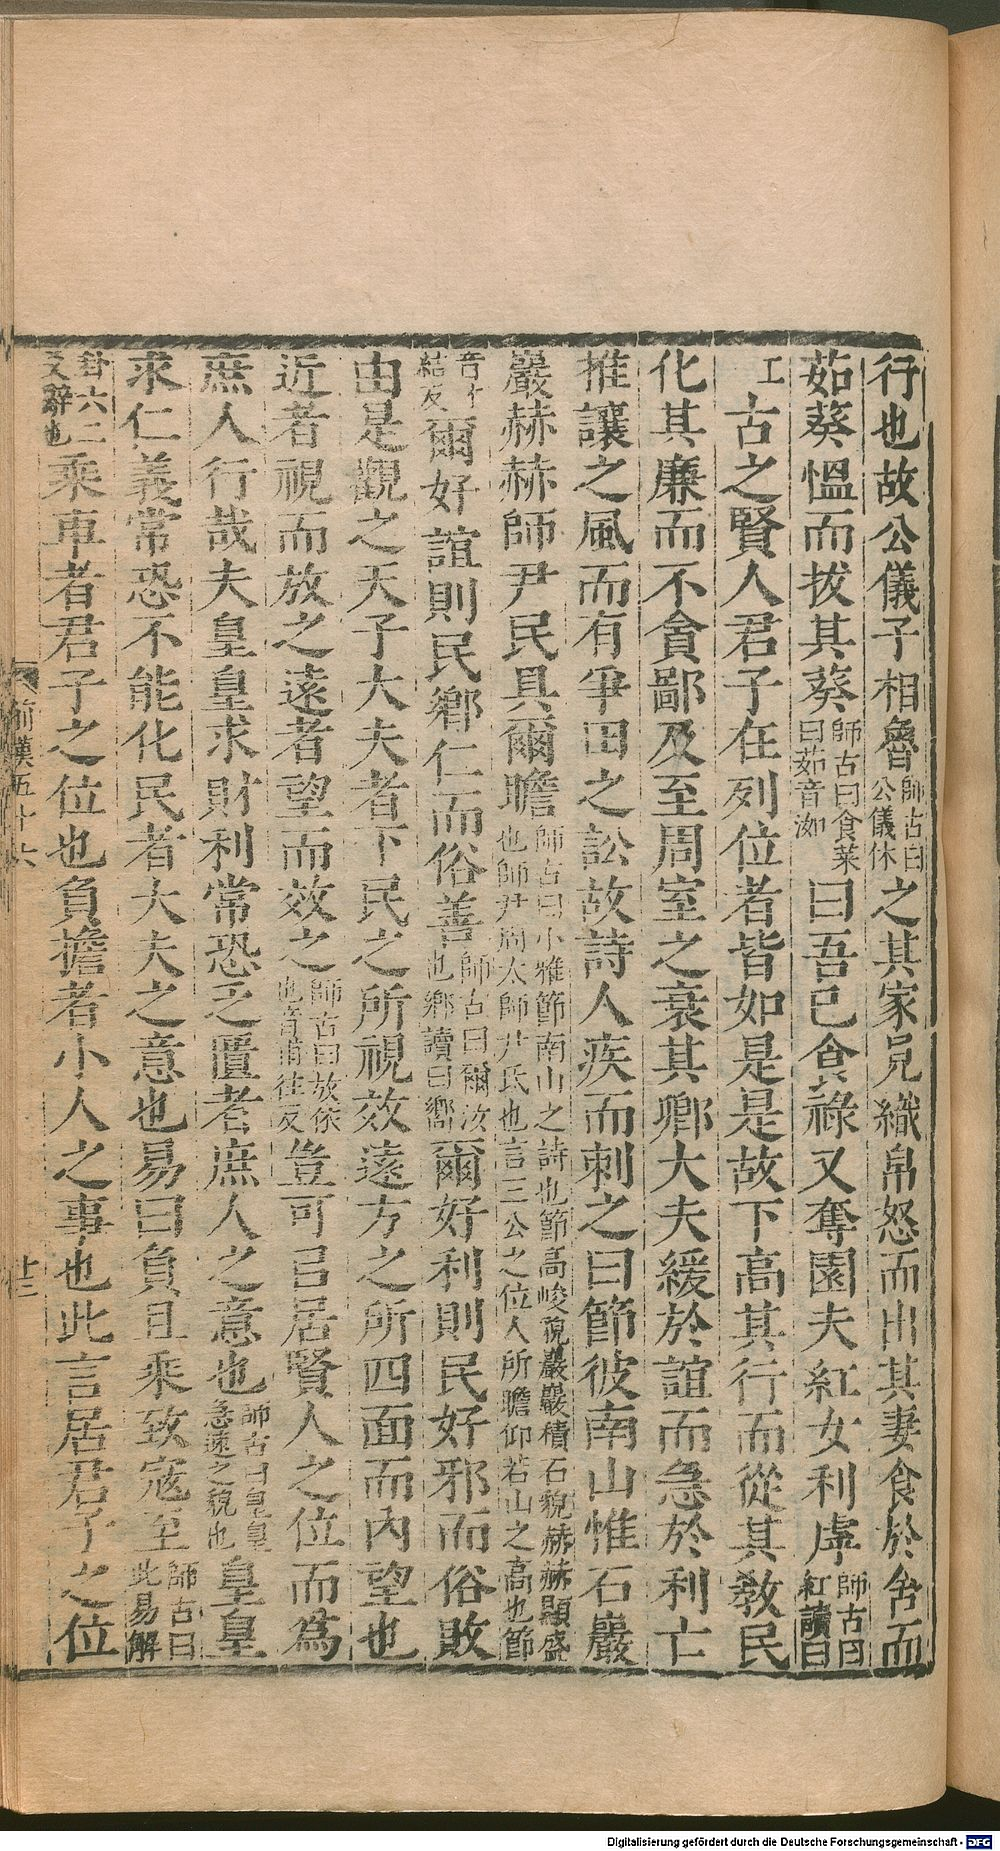 行也故公儀子相魯師古曰公儀休之其家見織帛怒而出其妻食於舍而
茹葵慍而拔其葵師古曰食菜曰茹音洳曰吾已食祿又奪園夫紅女利虖師古曰紅讀曰
工古之賢人君子在列位者皆如是是故下高其行而從其敎民
化其廉而不貪鄙及至周室之衰其卿大夫緩於誼而急於利亡
推讓之風而有爭田之訟故詩人疾而刺之曰節彼南山惟石巖
巖赫赫師尹民具爾瞻師古曰小雅節南山之詩也節高峻貌巖巖積石貌赫赫顯盛也師尹周太師尹氏也言三公之位人所瞻仰若山之高也節
音才結反爾好誼則民鄉仁而俗善師古曰爾汝也鄉讀曰嚮爾好利則民好邪而俗敗
由是觀之天子大夫者下民之所視效遠方之所四面而內望也
近者視而放之遠者望而效之師古曰放依也音甫往反豈可㠯居賢人之位而爲
庶人行哉夫皇皇求財利常恐乏匱者庶人之意也師古曰皇皇急速之貌也皇皇
求仁義常恐不能化民者大夫之意也易曰負且乘致寇至師古曰此易解
卦六三爻辭也乘車者君子之位也負擔者小人之事也此言居君子之位
前漢五十六
廿三
Digitalisierung gefördert durch die Deutsche Forschungsgemeinschaft - DFG